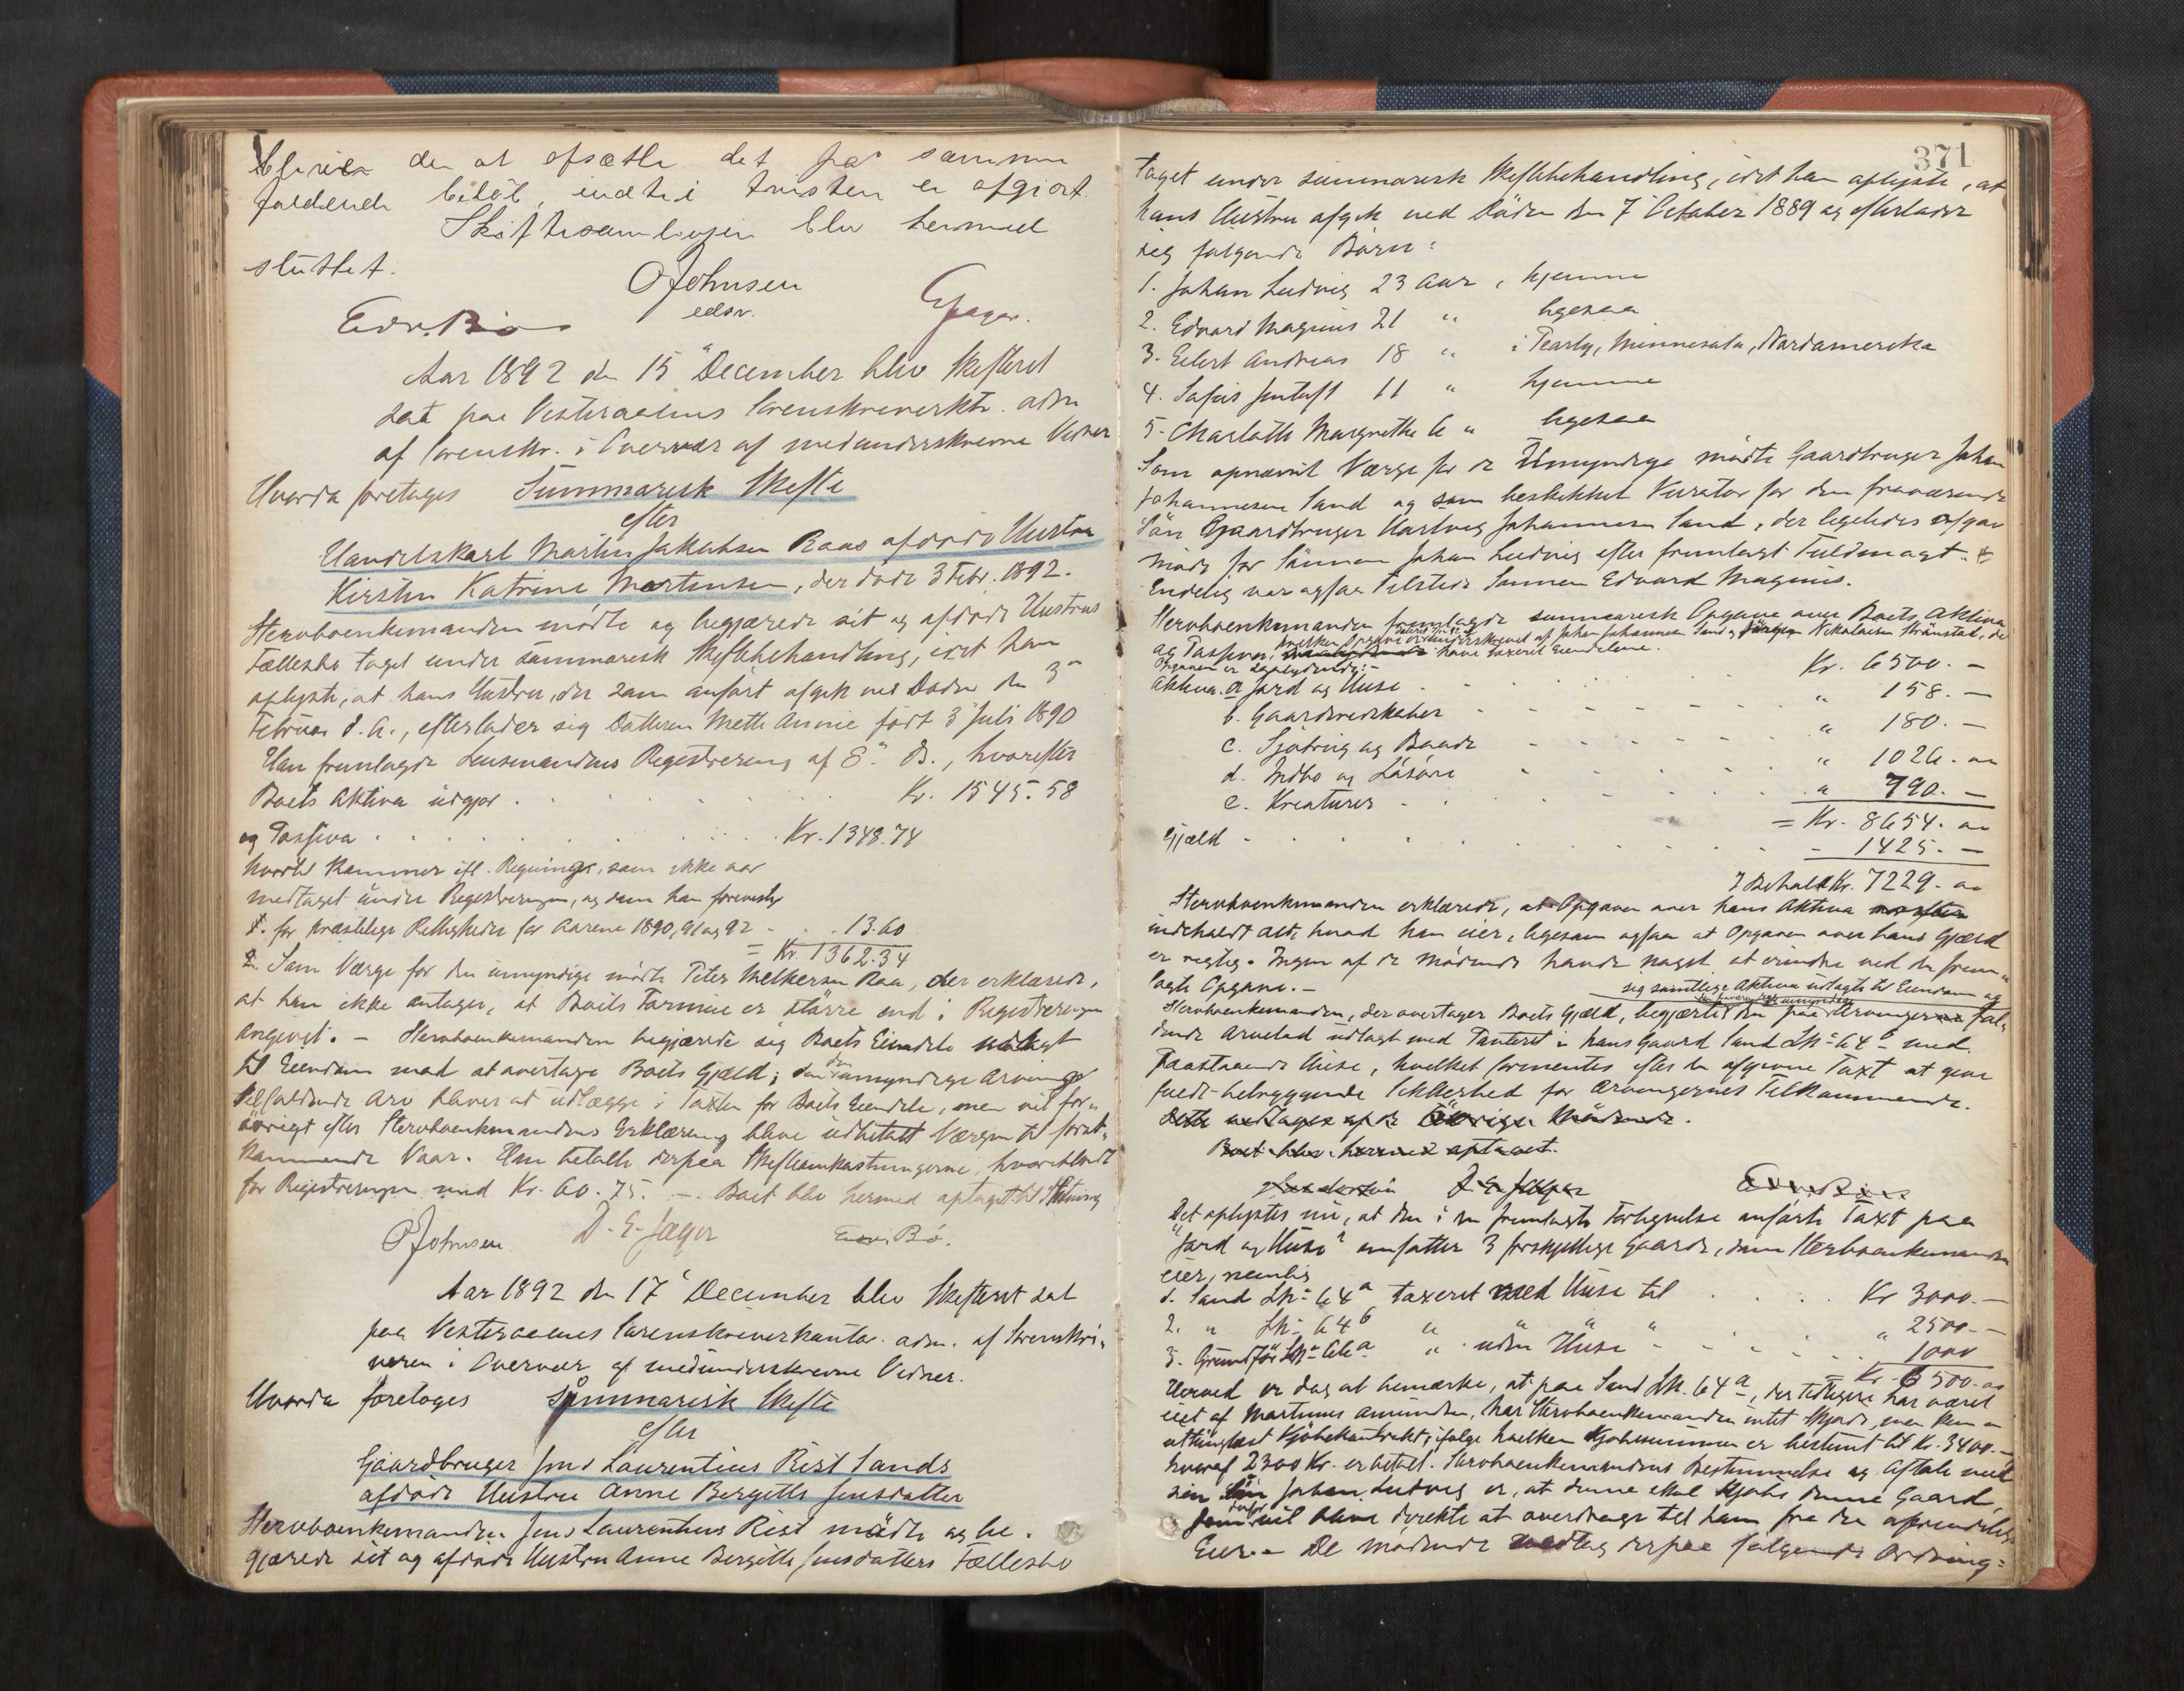 bliver den at afsætte det paa samme
faldende beløb, indtil tvisten er afgjort.
Skiftesamlingen blev hermed
sluttet.
OJohnsen
edsv.
Edv. Bø
Jæger.
Aar 1892 den 15 December blev Skifteret
sat paa Vesteraalens Sorenskriverktr. adm
af Sorenskr. i Overvær af medunderskrevne Vidner
Hvorda foretages Summarisk Skifte
efter
Handelskarl Martin Jakobsen Raaes afdøde Hustru
Kirstin Katrine Martinsen, der døde 3 Febr. 1892.
Stervboenkemanden mødte og begjærede sit og afdøde Hustrus
Fællesbo taget under summarisk Skiftebehandling, idet han
oplyste, at hans Hustru, der som anført afgik ved Døden den 3
Februar d. A., efterlader sig Datteren Mette Annie født 3 Juli 1890
Han fremlagde Lensmandens Registrering af 8 ds., hvorefter
Boets Aktiva udgjør . . . Kr. 1545.58
og Passiva . . . Kr. 1348.74
hvortil kommer ifl. Regninger, som ikke var
medtaget under Registreringen, og som han foreviste
1. for præstelige Rettigheder for Aarene 1890, 91 og 92 . . 13.60
= Kr. 1362.34
2. Som Værge for den umyndige mødte Peter Melkersen Raa, der erklærede,
at han ikke antager, at Boets Formue er større end i Registreringen
angivet. – Stervboenkemanden begjærede sig Boets Eiendele udlagt
til Eiendom mod at overtage Boets Gjæld; den den umyndige Arving
tilfaldende Arv bliver at udlægge i Taxten for Boets Eiendele, men vil for-
øvrigt efter Stervboenkemandens Erklæring blive udbetalt Værgen til først-
kommende Vaar. Han betalte derpaa Skifteomkostningerne, hvoriblandt
for Registreringen med Kr. 60.75. – Boet blev hermed optaget til Slutning
OJohnsen D. E. Jæger Edv. Bø.
Aar 1892 den 17 December blev Skifteret sat
paa Vesteraalens Sorenskriverkontor adm. af Sorenskri-
veren i Overvær af medunderskrevne Vidner.
Hvorda foretages Summarisk Skifte
efter
Gaardbruger Jens Laurentius Rist Sands
afdøde Hustru Anne Bergitte Jensdatter
Stervboenkemanden Jens Laurentius Rist mødte og be-
gjærede sit og afdøde Hustru Anne Bergitte Jensdatters Fællesbo
371
taget under summarisk Skiftebehandling, idet han oplyste, at
hans Hustru afgik ved Døden den 7 October 1889 og efterlader
sig følgende Børn:
1. Johan Ludvig 23 Aar, hjemme
2. Edvard Magnus 21 " ligesaa
3. Eilert Andreas 18 " i Pearly, Minnesota, Nordamerika
4. 11 " hjemme
5. Charlotte Margrethe 6 " ligesaa
Som opnævnt Værge for de Umyndige mødte Gaardbruger Johan
Johannesen Sand og som beskikket Kurator for den fraværende
Søn Gaardbruger Hartvig Johannesen Sand, der ligeledes afgav
Møde for Sønnen Johan Ludvig efter fremlagt Fuldmagt.
Endelig var ogsaa tilstede Sønnen Edvard Magnus.
Stervboenkemanden fremlagde summarisk Opgave over Boets Aktiva
og Passiva, hvilken Opgave er underskrevet af Johan Johannesen Sand og Nikolaisen Strønstad, der
have taxeret Eiendelene.
Opgaven er saalydende: –
Aktiva. a Jord og Huse . . . Kr. 6500. –
b. Gaardsredskaber . . . " 158. –
c. Sjøbrug og Baade . . . " 180. –
d. Indbo og Løsøre . . . " 1026. "
e. Kreaturer . . . " 790. –
= Kr. 8654. "
Gjæld . . . – 1425. –
I Behold Kr. 7229. "
Stervboenkemanden erklærede, at Opgaven over hans Aktiva
indeholdt alt, hvad han eier, ligesom ogsaa at Opgaven over hans Gjæld
er rigtig. Ingen af de Mødende havde noget at erindre ved den frem-
lagte Opgave. –
sig samtlige Aktiva udlagte til Eiendom og
Stervboenkemanden, der overtager Boets Gjæld, begjærte den paa Arvingerne fal-
dende Arvelod udlagt med Panteret i hans Gaard Sand Lk. 64 b med
paastaaende Huse, hvilket formentes efter den afgivne Taxt at give
fuldt betryggende Sikkerhed for Arvingernes Tilkommende.
Dette vedtages af de øvrige Mødende.
Boet blev hermed optaget.
D. E. Jæger Edv. Bø
Det oplystes nu, at den i den fremlagte Fortegnelse anførte Taxt paa
"Jord og Huse" omfatter 3 forskjellige Gaarde, som Stervboenkemanden
eier, nemlig
1. Sand Lk. 64 a taxeret med Huse til . . . Kr 3000. –
2. " Lk. 64 b " " " " . . . " 2500. –
3. Grundfør Lk. 66 a " uden Huse . . . " 1000
= Kr. 6500. "
Herved er dog at bemærke, at paa Sand Lk. 64 a, der tidligere har været
eiet af Martinus Amundsen, har Stervboenkemanden intet Skjøde, men kun en
uthinglæst Kjøbekontrakt, ifølge hvilken Kjøbesummen er bestemt til Kr. 3400. –
hvoraf 2300 Kr. er betalt. Stervboenkemandens Bestemmelse og Aftale med
sin Søn Johan Ludvig er, at denne skal kjøbe denne Gaard,
som vil blive direkte at overdrage til ham fra den oprindelige
Eier. – De mødende vedtog derpaa følgende Ordning: